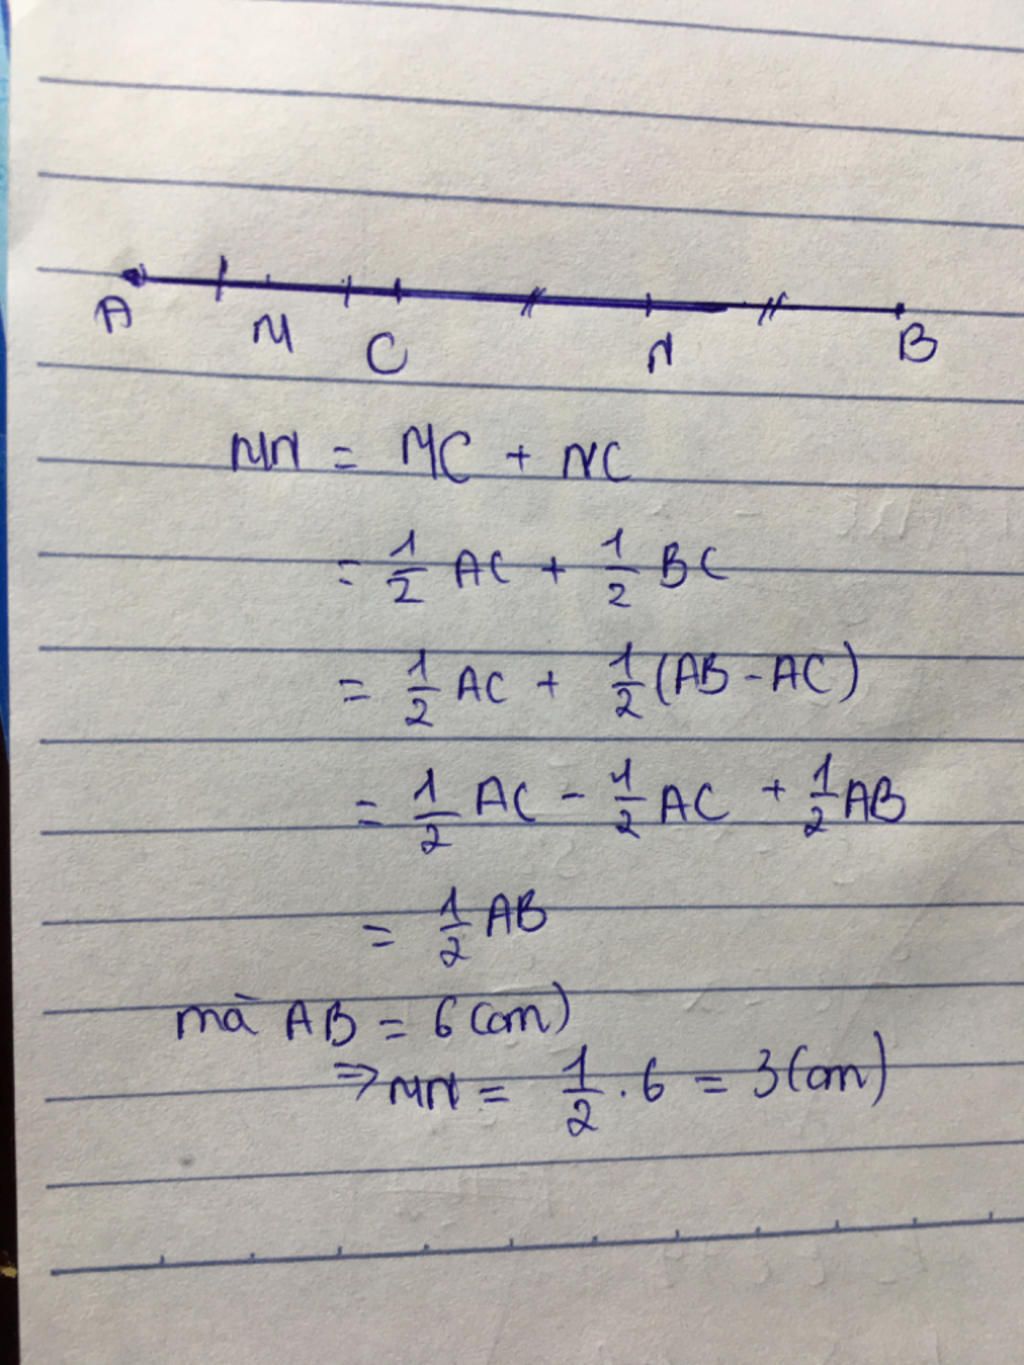 A M C N B
MN = MC + NC
= 1/2 AC + 1/2 BC
= 1/2 AC + 1/2 (AB - AC)
= 1/2 AC - 1/2 AC + 1/2 AB
= 1/2 AB
mà AB = 6 (cm)
⇒ MN = 1/2 . 6 = 3 (cm)